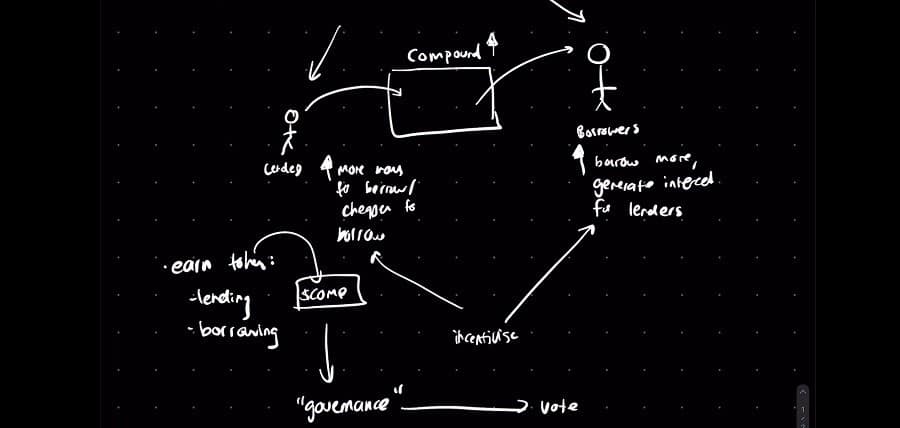 Compound
Borrowers
Lender
more ways
to borrow/
cheaper to
borrow
borrow more,
generate interest
for lenders
• earn token:
-lending
- borrowing
$COMP
incentivise
"governance"
vote